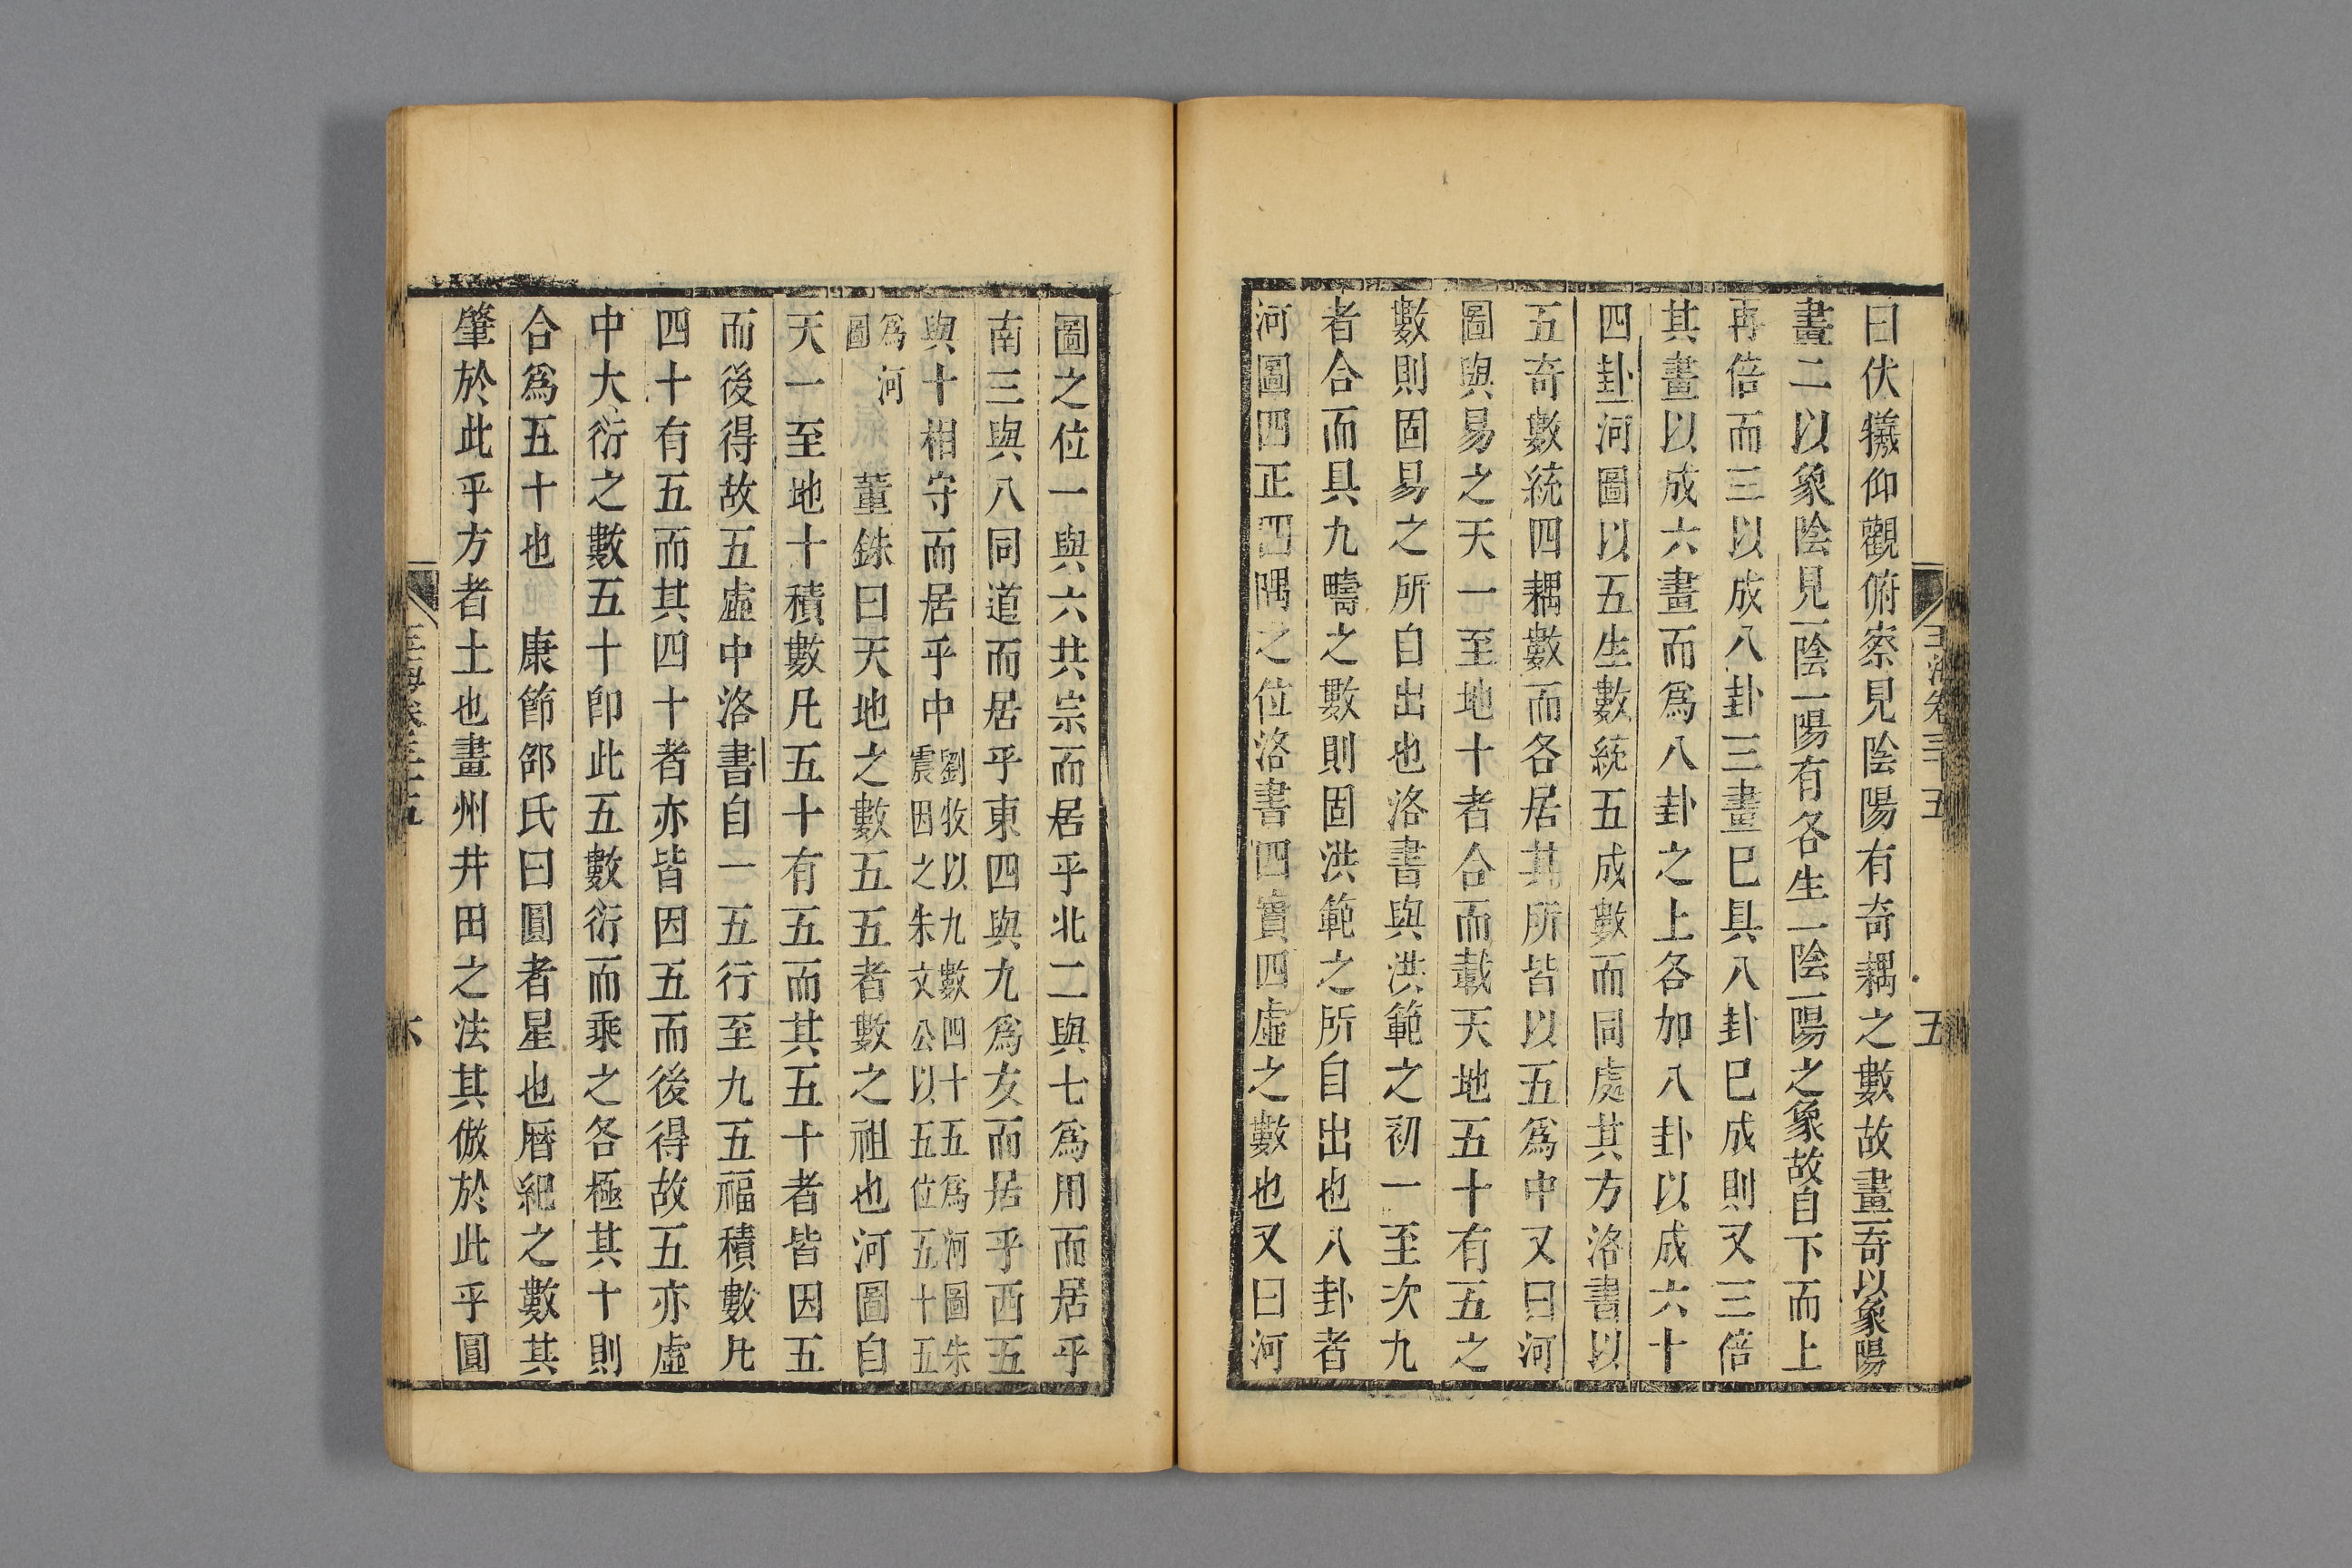 玉海卷三十五 五
曰伏犧仰觀俯察見陰陽有奇耦之數故畫一奇以象陽
畫二以象陰見一陰一陽有各生一陰一陽之象故自下而上
再倍而三以成八卦三畫巳具八卦巳成則又三倍
其畫以成六畫而爲八卦之上各加八卦以成六十
四卦河圖以五生數統五成數而同處其方洛書以
五奇數統四耦數而各居其所皆以五爲中又曰河
圖與易之天一至地十者合而載天地五十有五之
數則固易之所自出也洛書與洪範之初一至次九
者合而具九疇之數則固洪範之所自出也八卦者
河圖四正四隅之位洛書四實四虛之數也又曰河
圖之位一與六共宗而居乎北二與七爲用而居乎
南三與八同道而居乎東四與九爲友而居乎西五
與十相守而居乎中劉牧以九數四十五爲河圖朱
震因之朱文公以五位五十五
爲河
圖 董銖曰天地之數五五者數之祖也河圖自
天一至地十積數凡五十有五而其五十者皆因五
而後得故五虛中洛書自一五行至九五福積數凡
四十有五而其四十者亦皆因五而後得故五亦虛
中大衍之數五十卽此五數衍而乘之各極其十則
合爲五十也 康節邵氏曰圓者星也曆紀之數其
肇於此乎方者土也畫州井田之法其倣於此乎圓
玉海卷三十五 六